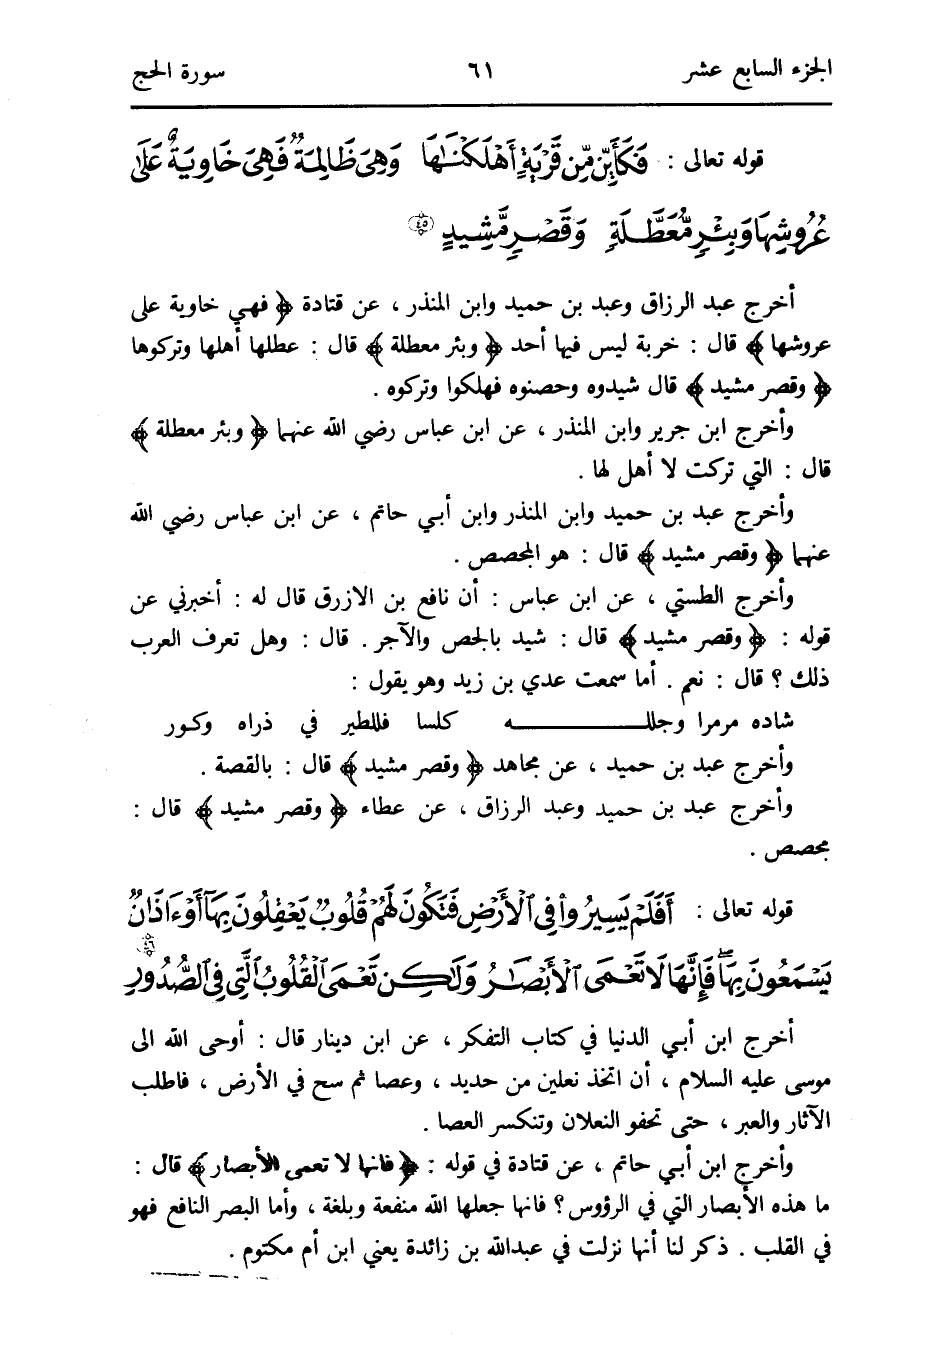 الجزء السابع عشر ٦١ سورة الحج
قوله تعالى : فَكَأَيِّن مِّن قَرْيَةٍ أَهْلَكْنَٰهَا وَهِىَ ظَالِمَةٌ فَهِىَ خَاوِيَةٌ عَلَىٰ
عُرُوشِهَا وَبِئْرٍ مُّعَطَّلَةٍ وَقَصْرٍ مَّشِيدٍ ٤٥
أخرج عبد الرزاق وعبد بن حميد وابن المنذر ، عن قتادة ﴿ فهي خاوية على
عروشها ﴾ قال : خربة ليس فيها أحد ﴿ وبئر معطلة ﴾ قال : عطلها أهلها وتركوها
﴿ وقصر مشيد ﴾ قال شيدوه وحصنوه فهلكوا وتركوه .
وأخرج ابن جرير وابن المنذر ، عن ابن عباس رضي الله عنهما ﴿ وبئر معطلة ﴾
قال : التي تركت لا أهل لها .
وأخرج عبد بن حميد وابن المنذر وابن أبي حاتم ، عن ابن عباس رضي الله
عنهما ﴿ وقصر مشيد ﴾ قال : هو المجصص .
وأخرج الطستي ، عن ابن عباس : أن نافع بن الازرق قال له : أخبرني عن
قوله : ﴿ وقصر مشيد ﴾ قال : شيد بالجص والآجر . قال : وهل تعرف العرب
ذلك ؟ قال : نعم . أما سمعت عدي بن زيد وهو يقول :
شاده مرمرا وجللـــــــه كلسا فللطير في ذراه وكور
وأخرج عبد بن حميد ، عن مجاهد ﴿ وقصر مشيد ﴾ قال : بالقصة .
وأخرج عبد بن حميد وعبد الرزاق ، عن عطاء ﴿ وقصر مشيد ﴾ قال :
مجصص .
قوله تعالى : أَفَلَمْ يَسِيرُوا۟ فِى ٱلْأَرْضِ فَتَكُونَ لَهُمْ قُلُوبٌ يَعْقِلُونَ بِهَآ أَوْ ءَاذَانٌ
يَسْمَعُونَ بِهَا ۖ فَإِنَّهَا لَا تَعْمَى ٱلْأَبْصَٰرُ وَلَٰكِن تَعْمَى ٱلْقُلُوبُ ٱلَّتِى فِى ٱلصُّدُورِ ٤٦
أخرج ابن أبي الدنيا في كتاب التفكر ، عن ابن دينار قال : أوحى الله الى
موسى عليه السلام ، أن اتخذ نعلين من حديد ، وعصا ثم سح في الأرض ، فاطلب
الآثار والعبر ، حتى تحفو النعلان وتنكسر العصا .
وأخرج ابن أبي حاتم ، عن قتادة في قوله : ﴿ فانها لا تعمى الأبصار ﴾ قال :
ما هذه الأبصار التي في الرؤوس ؟ فانها جعلها الله منفعة وبلغة ، وأما البصر النافع فهو
في القلب . ذكر لنا أنها نزلت في عبدالله بن زائدة يعني ابن أم مكتوم .